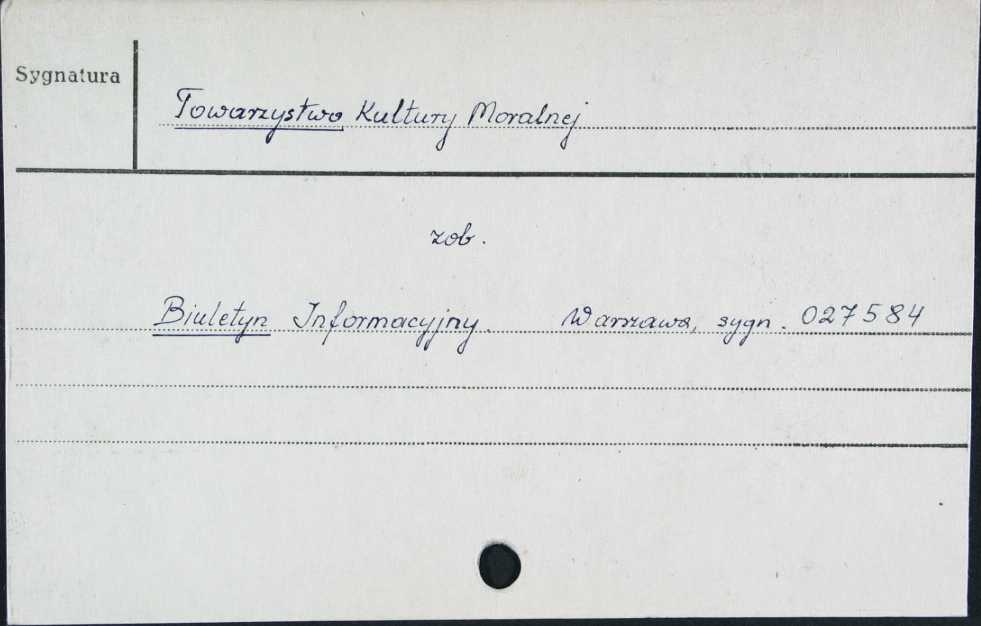 Sygnatura
Towarzystwo Kultury Moralnej
zob.
Biuletyn Informacyjny. Warszawa, sygn. 027584